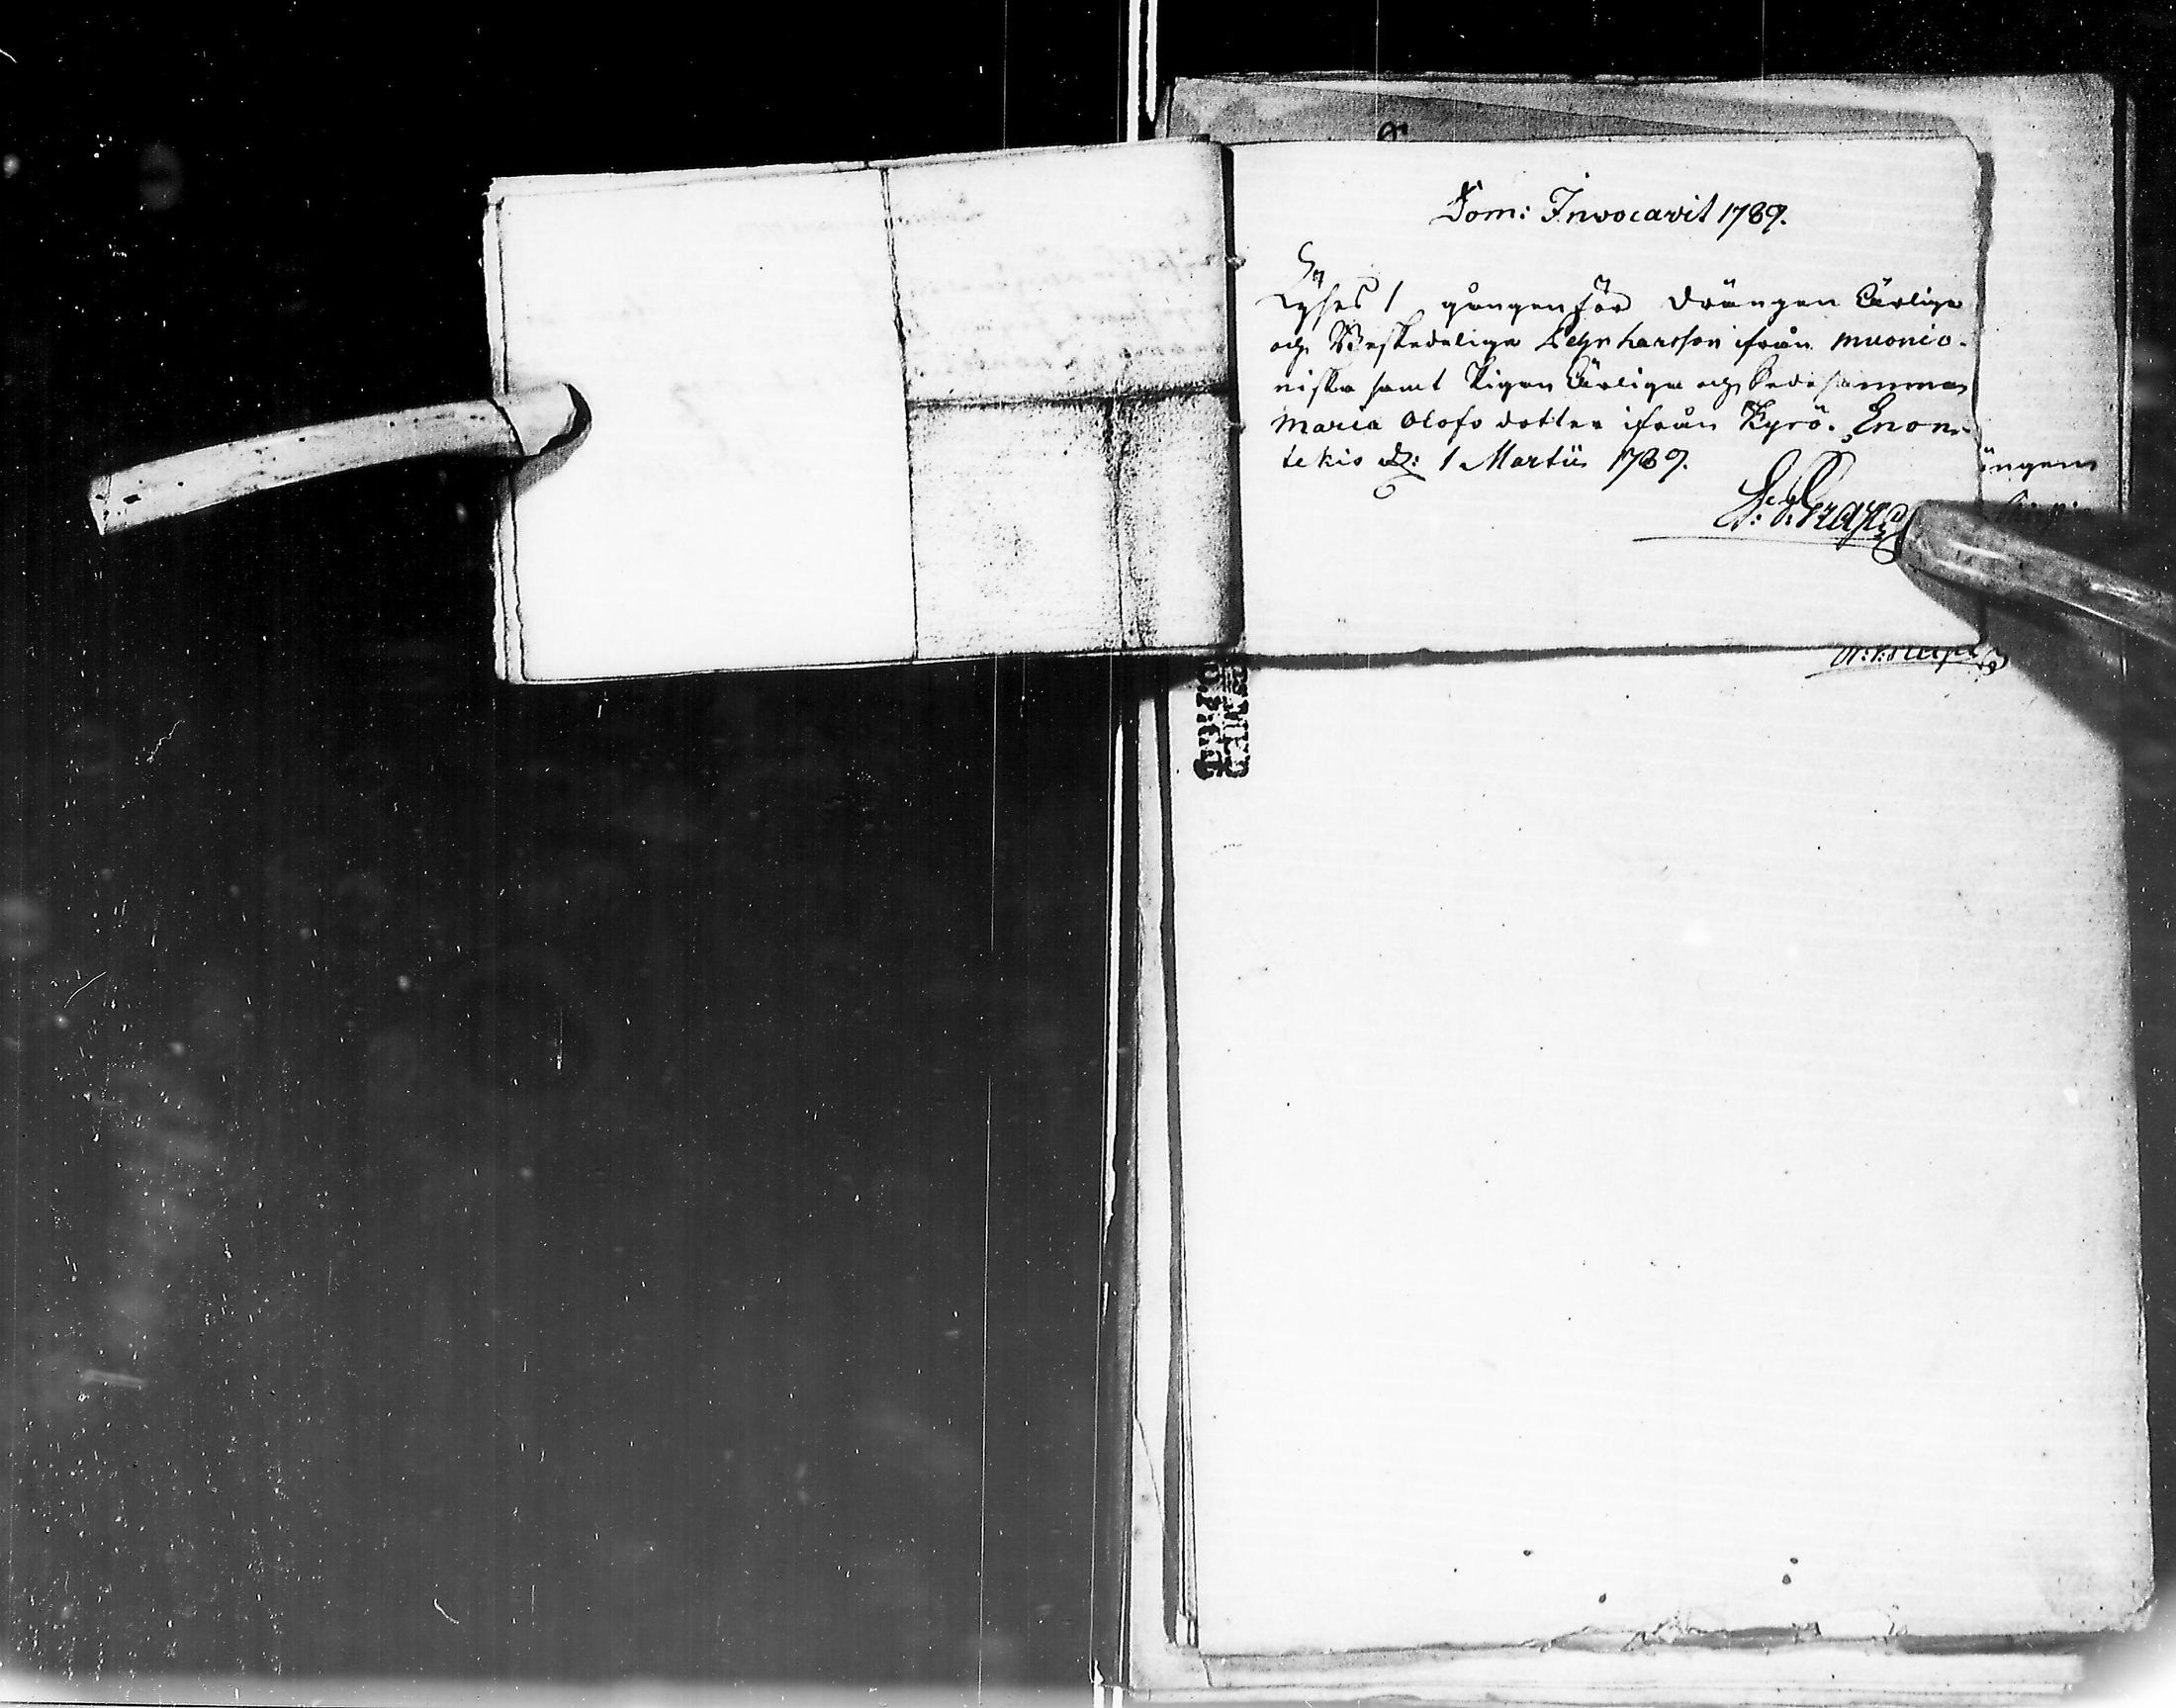 Dom: Invocavit 1789.
Lyses 1 gången för drängen Ärlige
och Beskedelige Lars Larsson ifrån muonio-
niska samt Pigan Ärliga och Sedesamma
Maria Olofs dotter ifrån Kyrö. Enon-
tekis d: 1 Martii 1789.
ängen